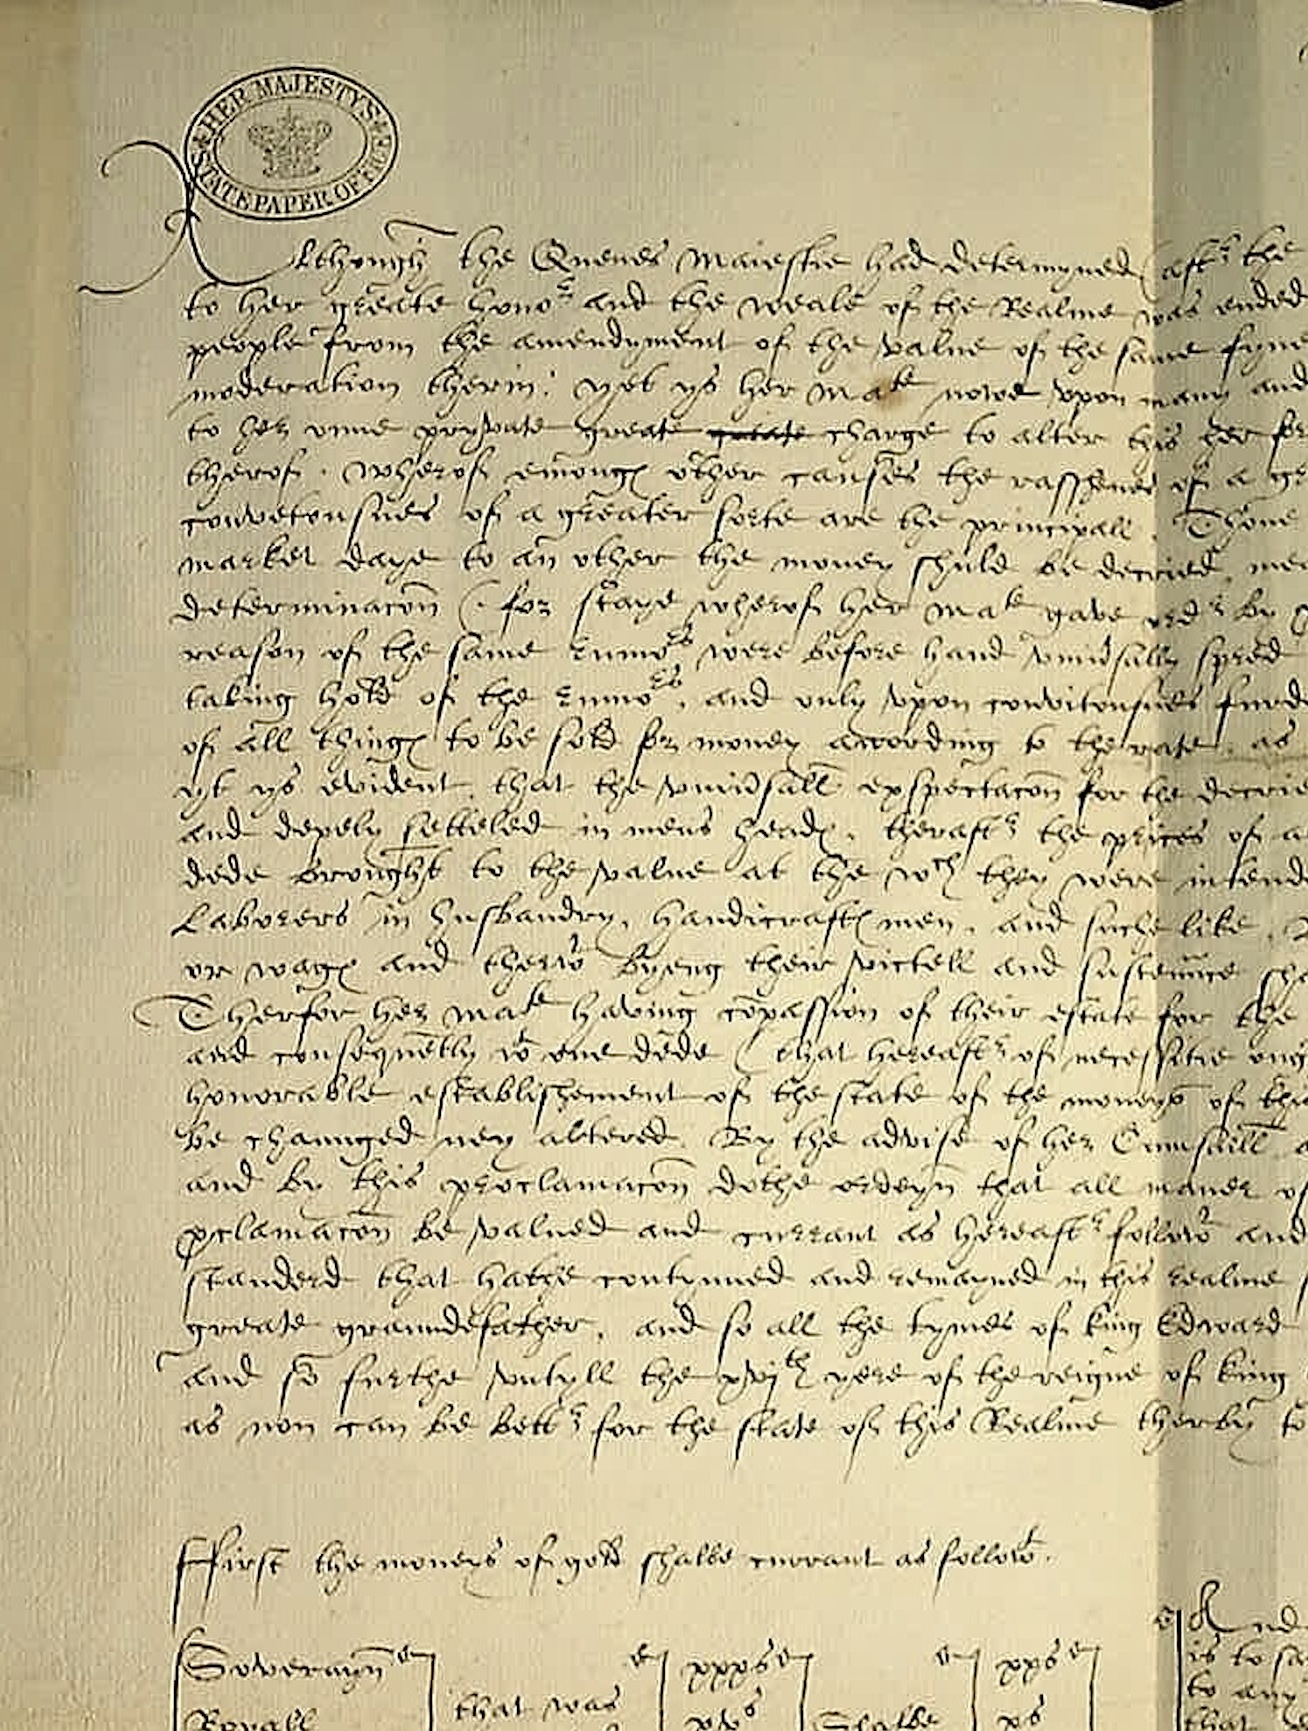 HER MAJESTY'S STATE PAPER OFFICE
Although the Quenes Maiestie had determyned (aftr the
to her greate honor and the weale of the Realme was ended
people from the amendyment of the value of the same fyne
moderation therin: yet ys her Matie nowe vpon many and
to her owne pryvate greate greate charge to alter this her for
therof. Wherof emonges other causes the rasshenes of a gr
covvetousnes of a greater sorte are the principall. Thone
market daye to an other the money shuld be decried, men
determinacon (for staye wherof her Matie gave ordr by
reason of the same rumors were before hand univsally spred
taking hold of the rumors, and only vpon covvitousnes
of all things to be sold for money according to the rate, as
yt ys evident, that the vnivsall expectacon for the decrie
and depely setteled in mens heads, theraftr the prices of a
dede brought to the value at the wch they were intende
Laborers in husbandry, handicrafts men, and suche like,
or wages and therwt byeng their victell and sustennce sho
Therfor her Matie having compassion of their estate for the
and consequently wt one dede (that hereaftr of necessitie
honorable establishement of the state of the moneys of this
be chaunged ney altered. By the advise of her Counsaill a
and by this proclamacon dothe ordeyn that all maner of
pclamacon be valued and currant as hereaftr followt and
standerd that hathe contynued and remayned in this realme
greate graundefather, and so all the tymes of king Edward
and so furthe vntyll the xvjth yere of the reigne of king
as non can be bettr for the state of this Realme therby to
Ffirst the moneys of gold shalbe currant as followt.
Soveraign xxxs xxs And
is to sa
Royall that was xvs Shalbe xs to any
that